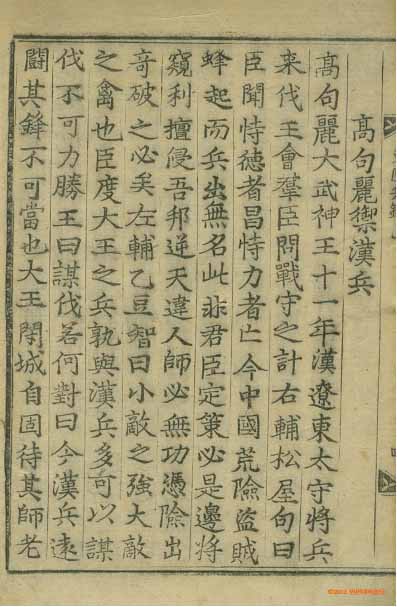 高句麗禦漢兵
高句麗大武神王十一年漢遼東太守將兵
来伐王會羣臣問戰守之計右輔松屋句曰
臣聞恃德者昌恃力者亡今中國荒險盜賊
蜂起而兵出無名此非君臣定策必是邊將
窺利擅侵吾邦逆天違人師必無功憑險出
竒破之必矣左輔乙豆智曰小敵之強大敵
之禽也臣度大王之兵孰與漢兵多可以謀
伐不可力勝王曰謀伐若何對曰今漢兵遠
鬪其鋒不可當也大王閉城自固待其師老